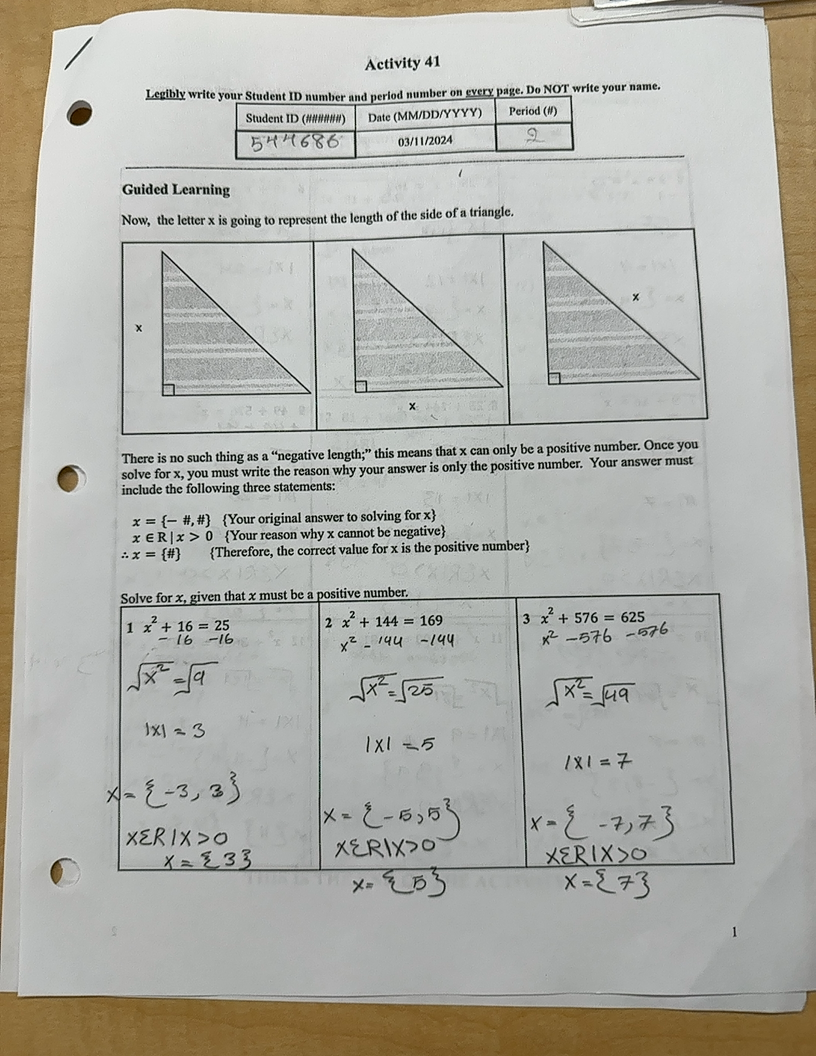 Activity 41
Legibly write your Student ID number and period number on every page. Do NOT write your name.
Student ID (######) Date (MM/DD/YYYY) Period (#)
544686 03/11/2024 2
Guided Learning
Now, the letter x is going to represent the length of the side of a triangle.
x
x
x
There is no such thing as a “negative length;” this means that x can only be a positive number. Once you
solve for x, you must write the reason why your answer is only the positive number. Your answer must
include the following three statements:
x = {− #, #} {Your original answer to solving for x}
x ∈ R | x > 0 {Your reason why x cannot be negative}
∴ x = {#} {Therefore, the correct value for x is the positive number}
Solve for x, given that x must be a positive number.
1 x² + 16 = 25
-16 -16
√x² = √9
|x| = 3
x = {-3, 3}
xƐR|x>0
x = {3}
2 x² + 144 = 169
x² - 144 -144
√x² = √25
|x| = 5
x = {-5, 5}
xƐR|x>0
x = {5}
3 x² + 576 = 625
x² -576 -576
√x² = √49
|x| = 7
x = {-7, 7}
xƐR|x>0
x = {7}
1